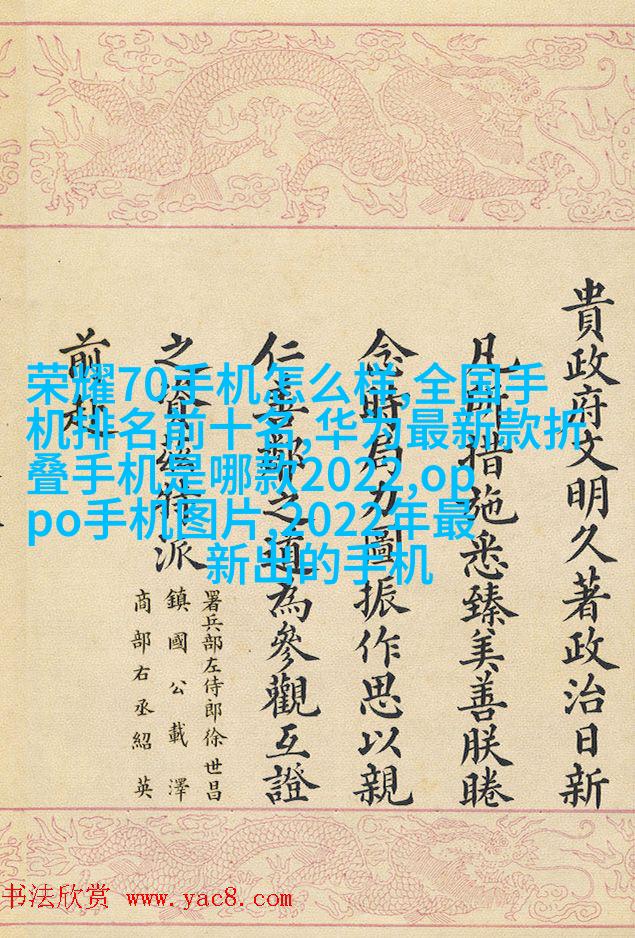 貴政府文明久著政治日新
凡所措施悉臻美善朕睠
念時局力圖振作思以親
仁善鄰之道為參觀互證
之資茲特派
署兵部左侍郎徐世昌
鎮國公載澤
商部右丞紹英
前赴
荣耀70手机怎么样,全国手
机排名前十名,华为最新款折
叠手机是哪款2022,op
po手机图片,2022年最
新出的手机
书法欣赏 www.yac8.com